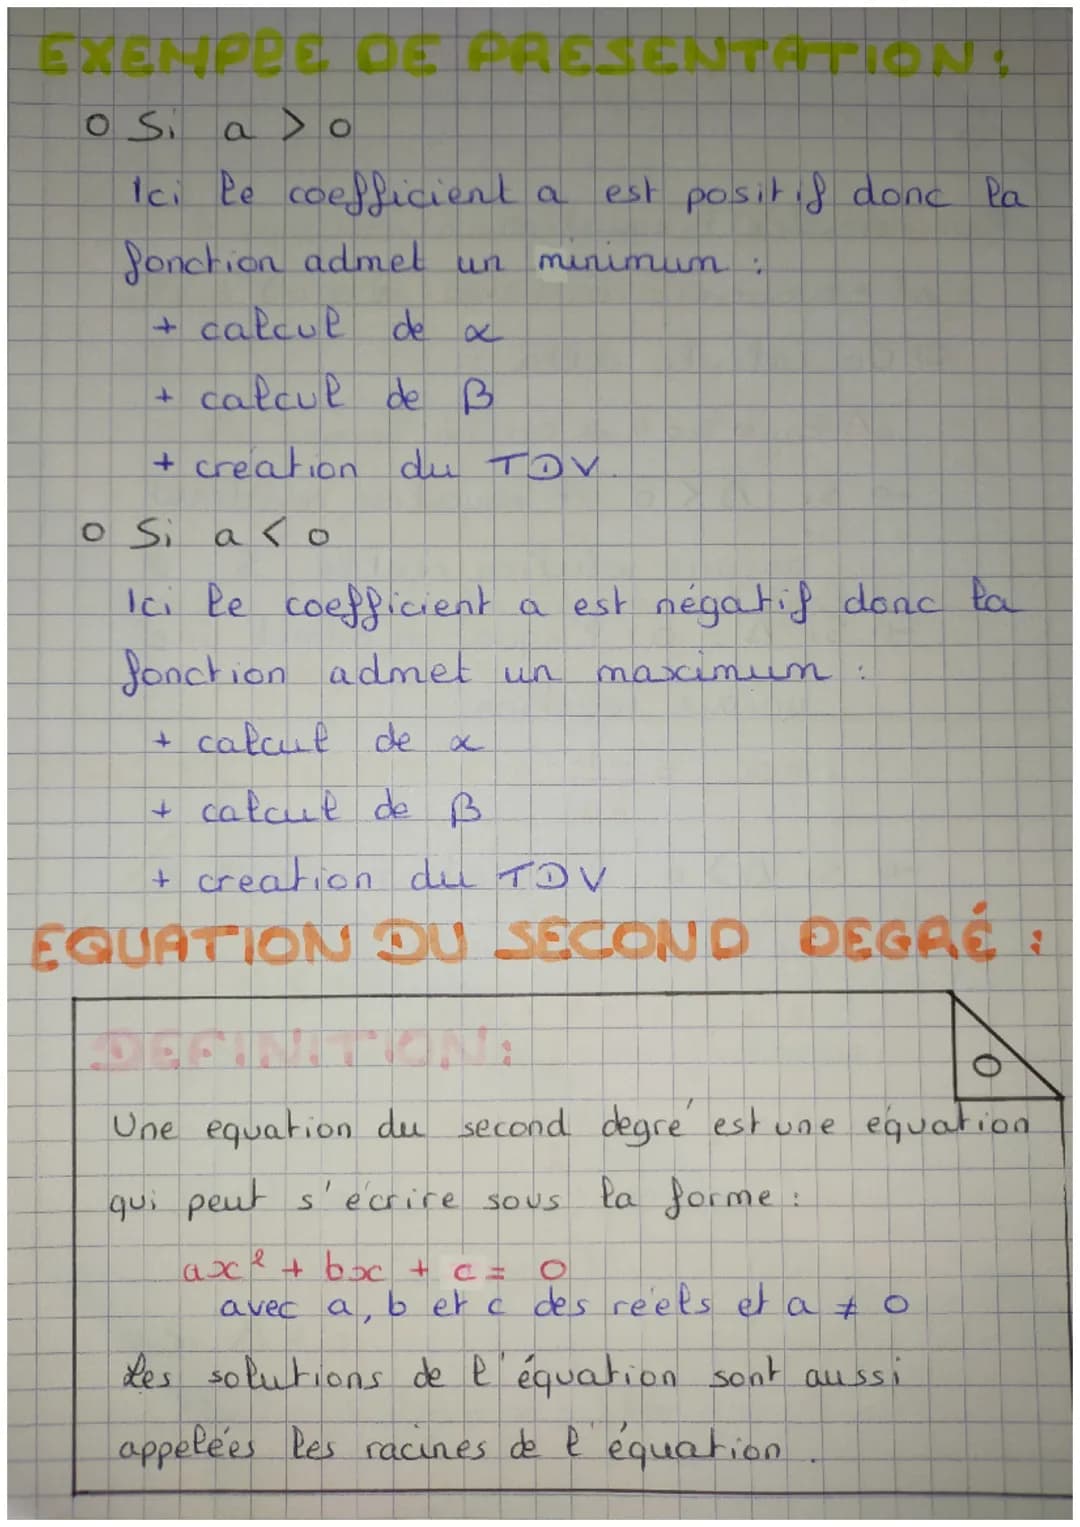 EXEMPLE DE PRESENTATION :
o Si a > 0
Ici le coefficient a est positif donc la
fonction admet un minimum :
+ calcul de α
+ calcul de β
+ creation du TDV.
o Si a < 0
Ici le coefficient a est négatif donc la
fonction admet un maximum :
+ calcul de α
+ calcul de β
+ creation du TDV
EQUATION DU SECOND DEGRÉ :
DEFINITION :
O
Une equation du second degré est une équation
qui peut s'écrire sous la forme :
ax² + bx + c = 0
avec a, b et c des réels et a ≠ 0
Les solutions de l'équation sont aussi
appelées les racines de l'équation.